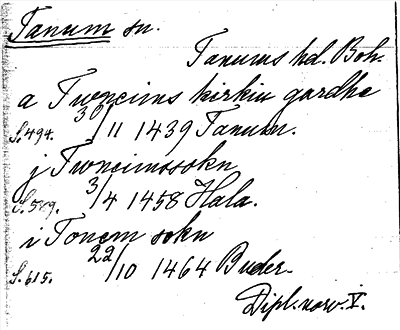 Tanum sn.
Tanums hd. Boh.
a Twneims kirkiu gardhe
S. 494. 30/11 1439 Tanum.
j Twneimssokn
S. 579. 3/4 1458 Hala.
i Tonem sokn
S. 615. 22/10 1464 Buder.
Dipl. norv. V.